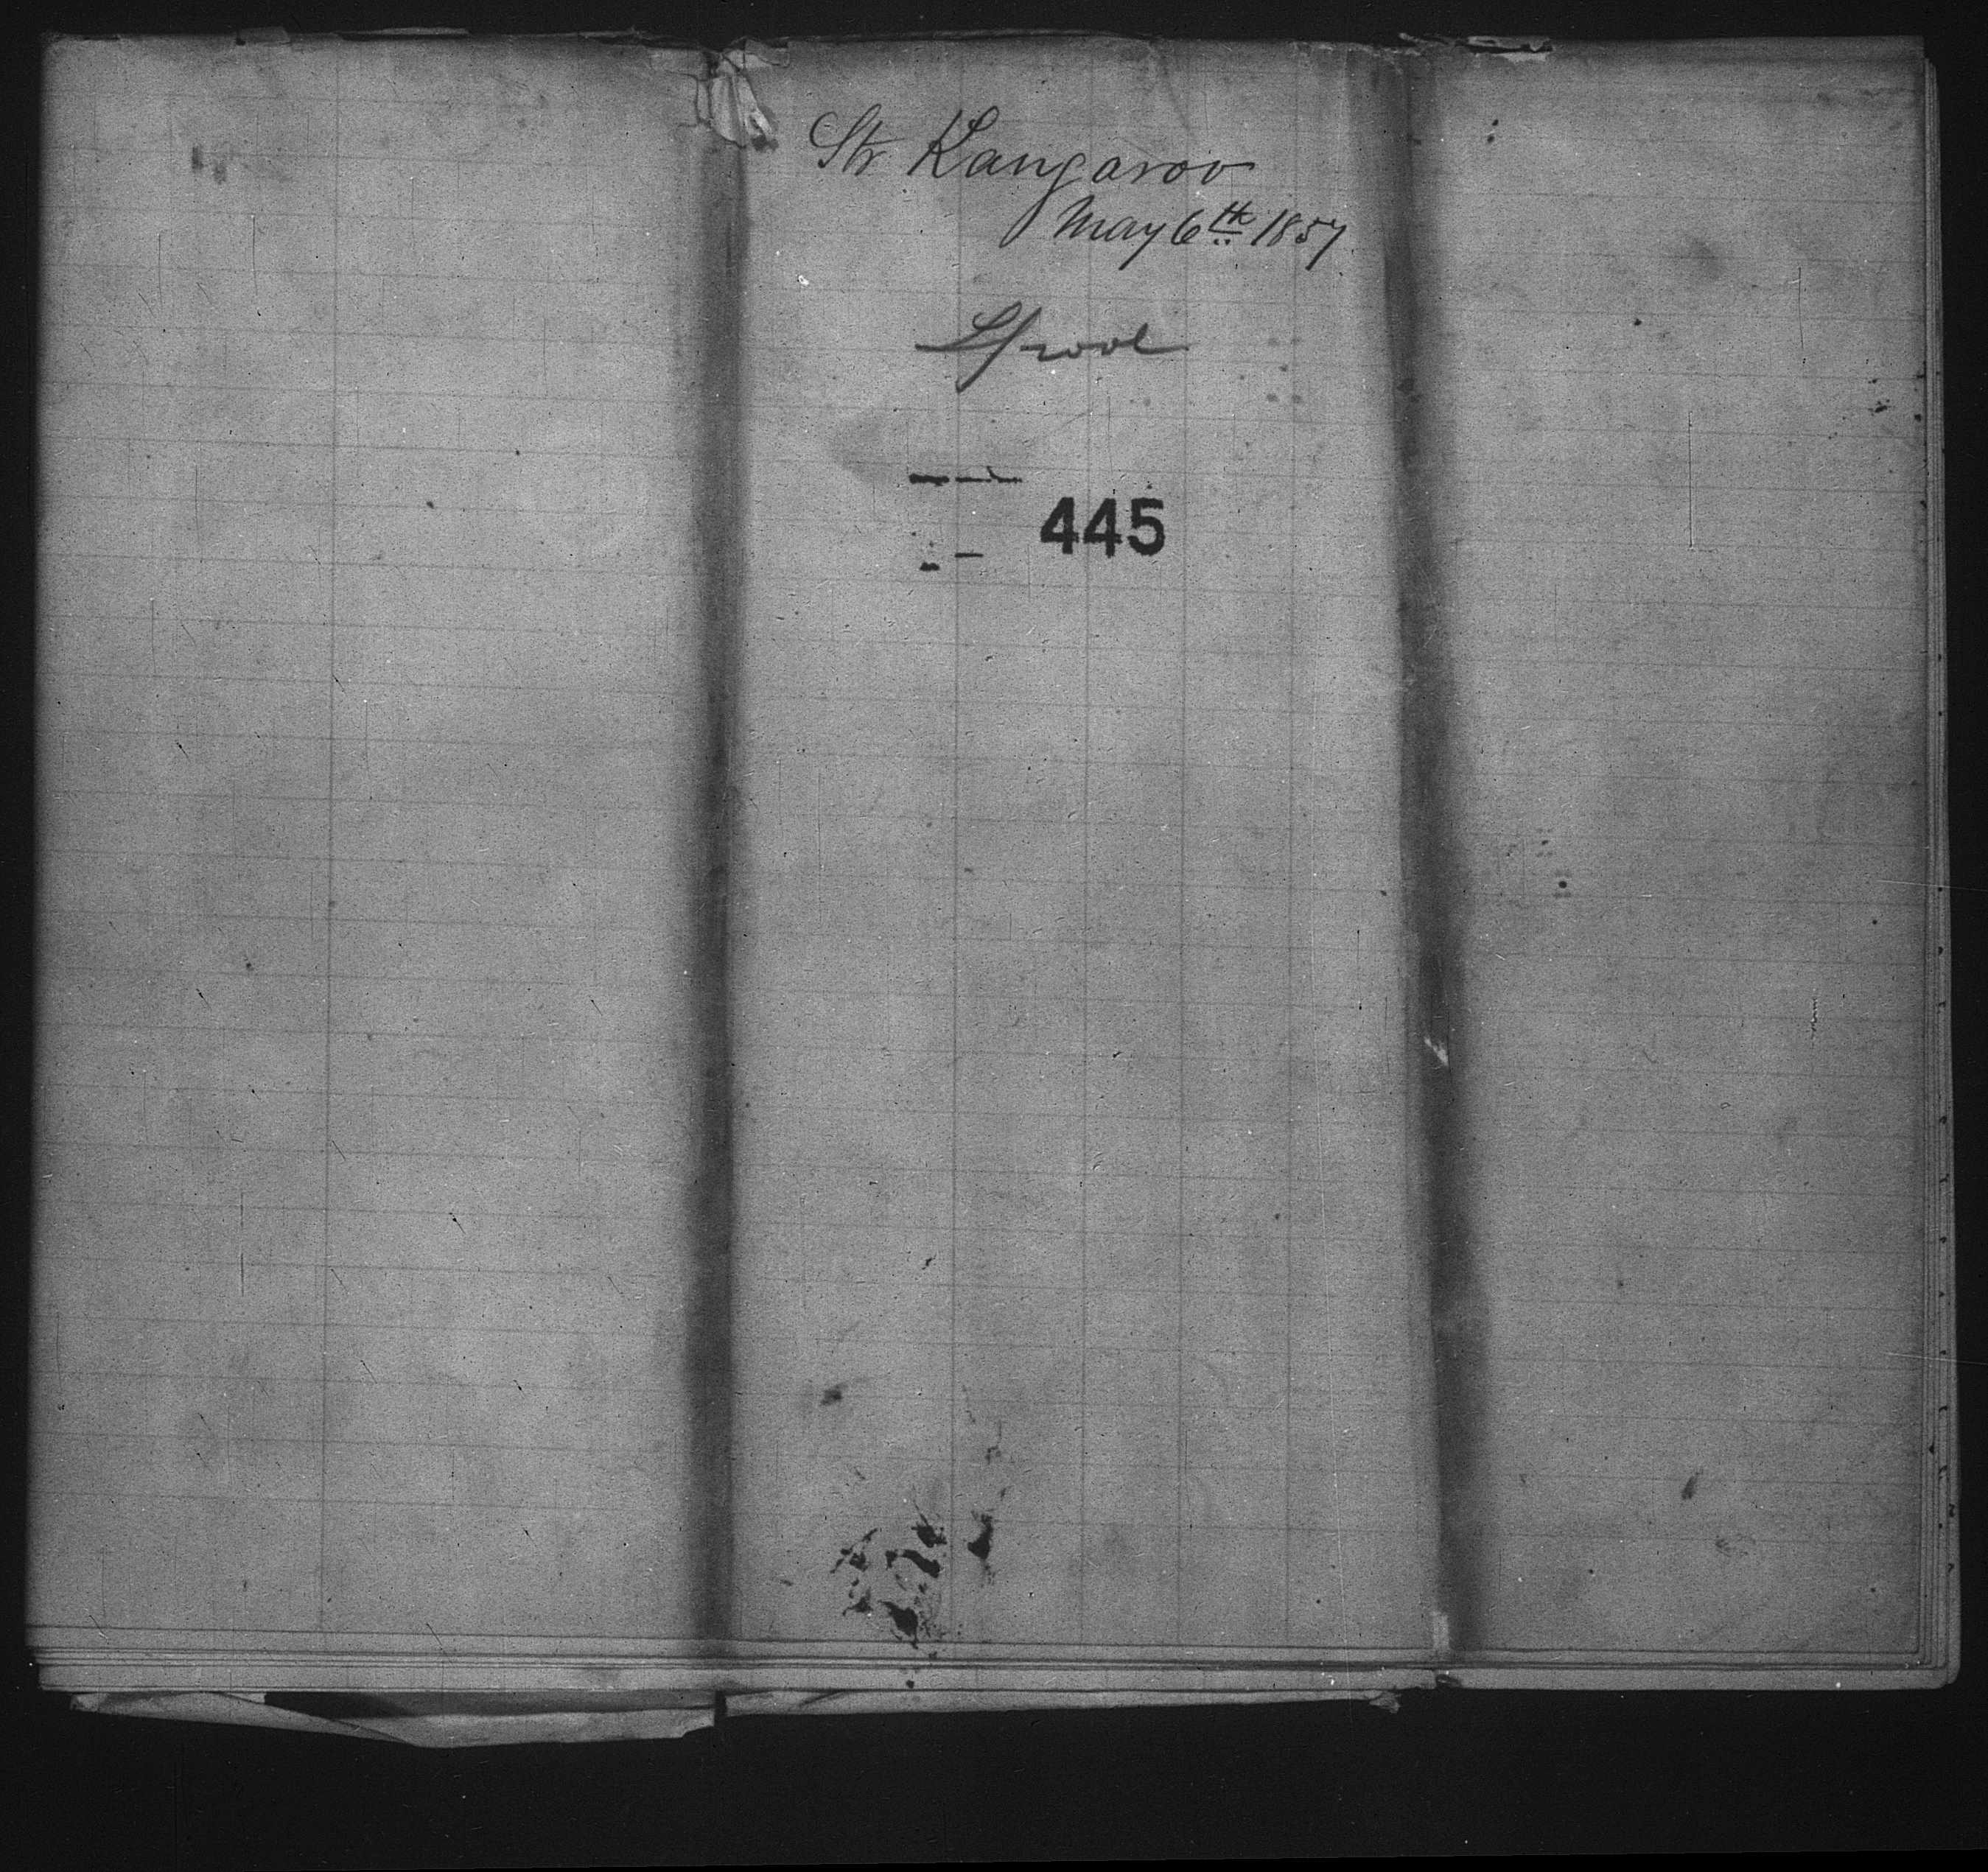 Str Kangaroo
May 6th 1857
Lpool
445